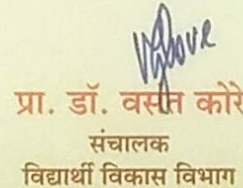 प्रा. डॉ. वसंत कोरे
संचालक
विद्यार्थी विकास विभाग